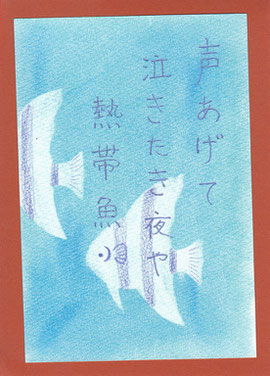 声あげて
泣きたき夜や
熱帯魚